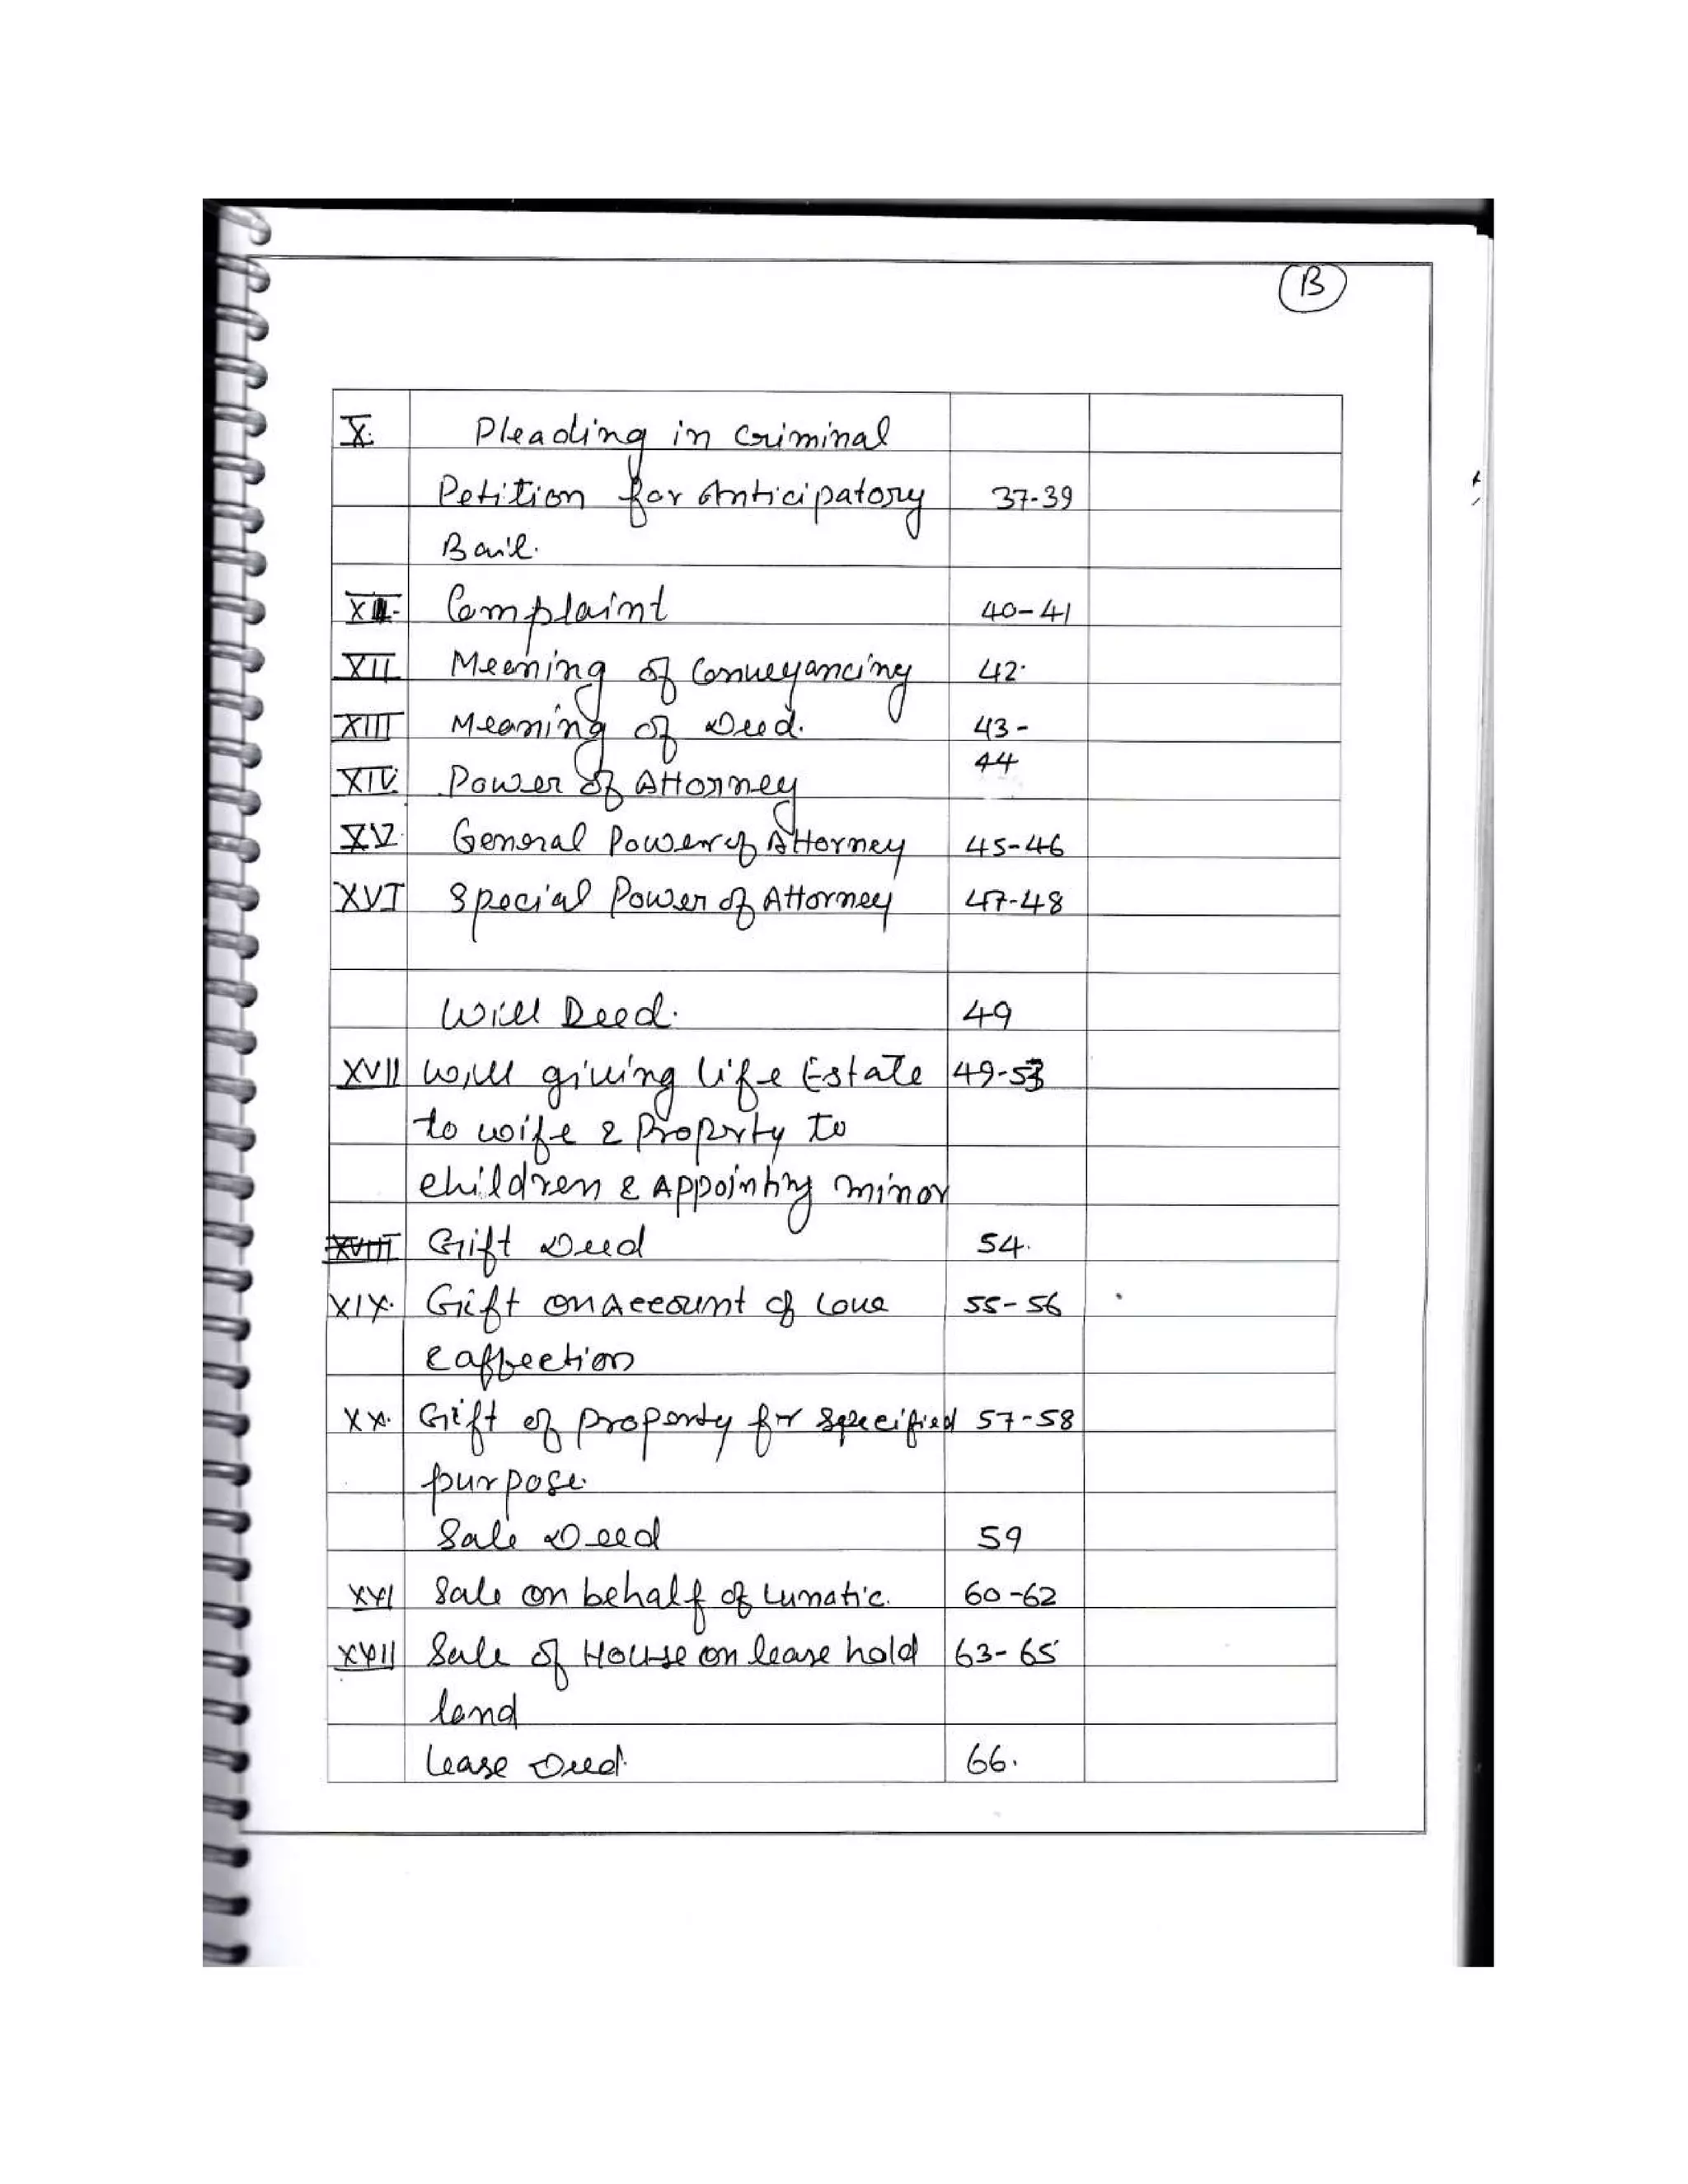 B
X. Pleading in criminal
Petition for Anticipatory 37-39
Bail.
Complaint 40-41
XII Meening of Conveyancing 42.
XIII Meaning of Deed. 43-
XIV. Power of Attorney 44
XV. General Power of Attorney 45-46
XVI Special Power of Attorney 47-48
Will Deed. 49
XVII Will giving life Estate 49-53
to wife & Property to
children & Appointing minor
XVIII Gift Deed 54.
XIX. Gift on Account of Love 55-56
& affection
XX. Gift of Property for specified 57-58
purpose.
Sale Deed 59
XXI Sale on behalf of Lunatic. 60-62
XXII Sale of House on lease hold 63-65
land
Lease Deed. 66.